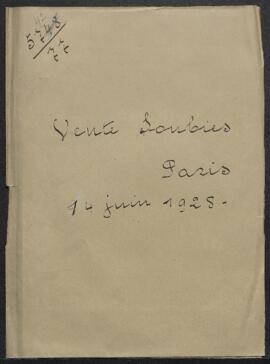 5748
77
Vente Soubies
Paris
14 juin 1928.